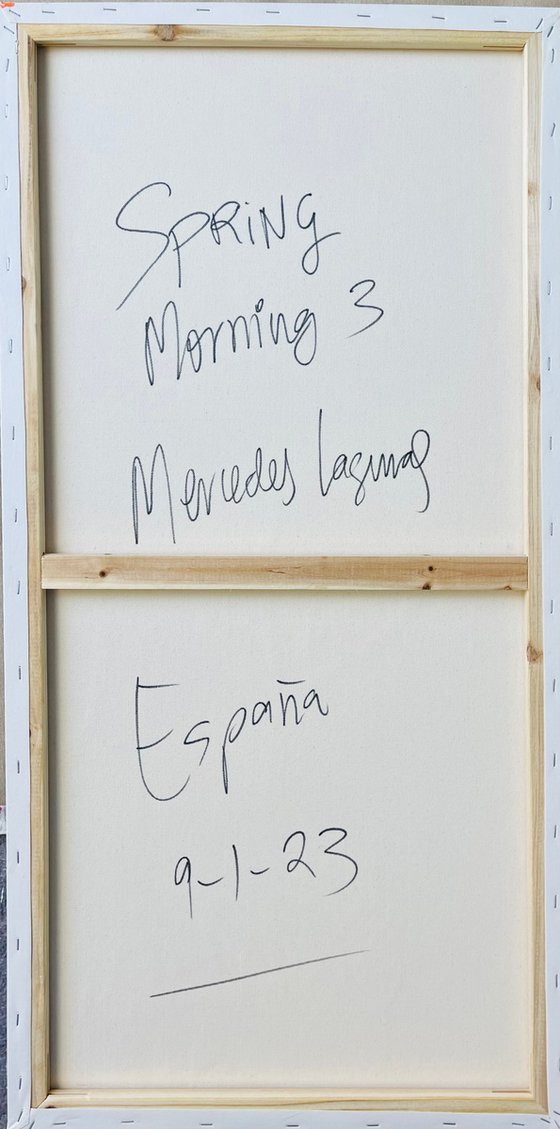 SPRiNG
Morning 3
Mercedes Lagunas
España
9-1-23